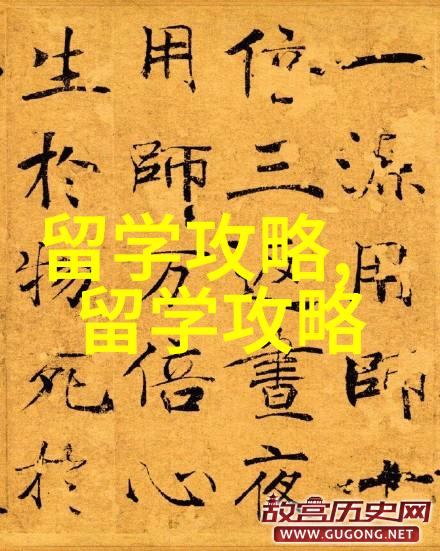 一源用師十
倍三晝夜
用師万倍心
生於物死於
留学攻略,
留学攻略
故宫历史网
WWW.GUGONG.NET